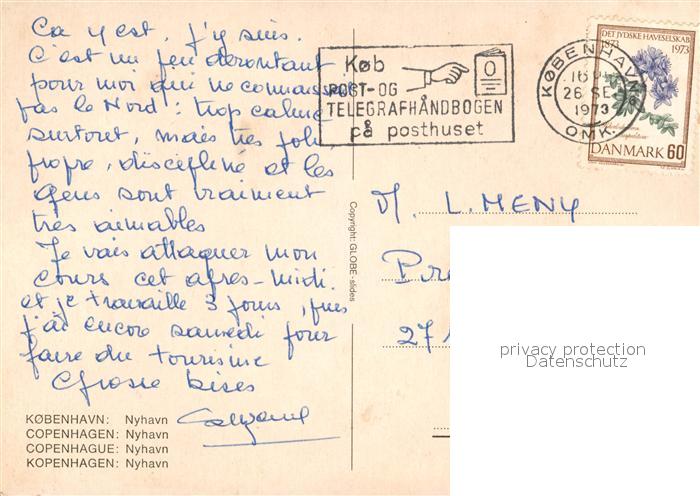 Ca y est, j'y suis.
C'est un peu deroutant
pour moi qui ne connaissais
pas le Nord : trop calme
surtout, mais très joli
propre, discipliné et les
gens sont vraiment
très aimables
Je vais attaquer mon
cours cet après-midi
et je travaille 3 jours, puis
j'ai encore samedi pour
faire du tourisme
Grosse bises
KØBENHAVN: Nyhavn
COPENHAGEN: Nyhavn
COPENHAGUE: Nyhavn
KOPENHAGEN: Nyhavn
Copyright: GLOBE-slides
Køb
POST-OG
TELEGRAFHÅNDBOGEN
på posthuset
KØBENHAVN
26 SE.
1973
OMK.
DET JYDSKE HAVESELSKAB
1873 1973
DANMARK 60
M. L. MENY
Pre
27
privacy protection
Datenschutz